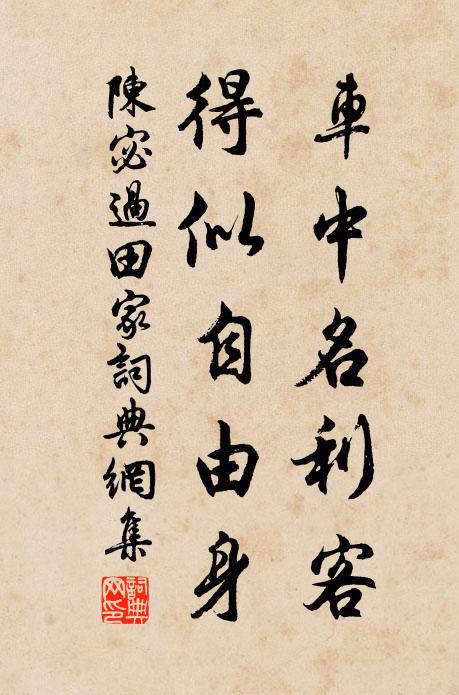 車中名利客
得似自由身
陳宓過田家詞典網集
詞典網印